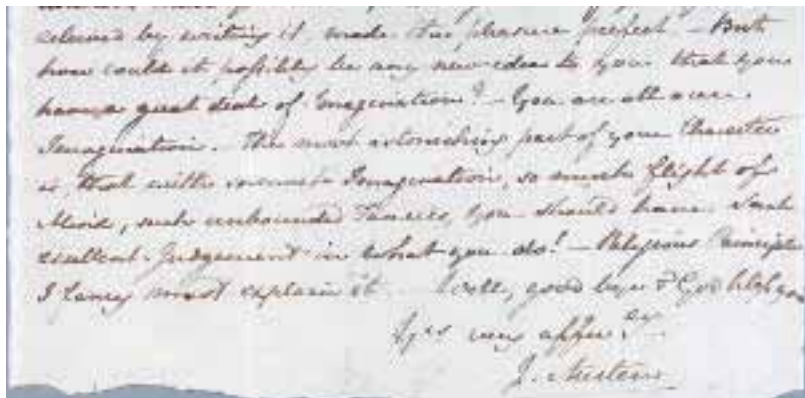 by writing it, made the pleasure perfect. — But
how could it possibly be any new idea to you that you
have a great deal of Imagination? — You are all over
Imagination. — The most astonishing part of your Character
is, that with so much Imagination, so much flight of
Mind, such unbounded Fancies, you should have such
excellent Judgement in what you do! — Religious Principle
I fancy must explain it. — Well, good bye & God bless you
Yrs very affecly
J. Austen